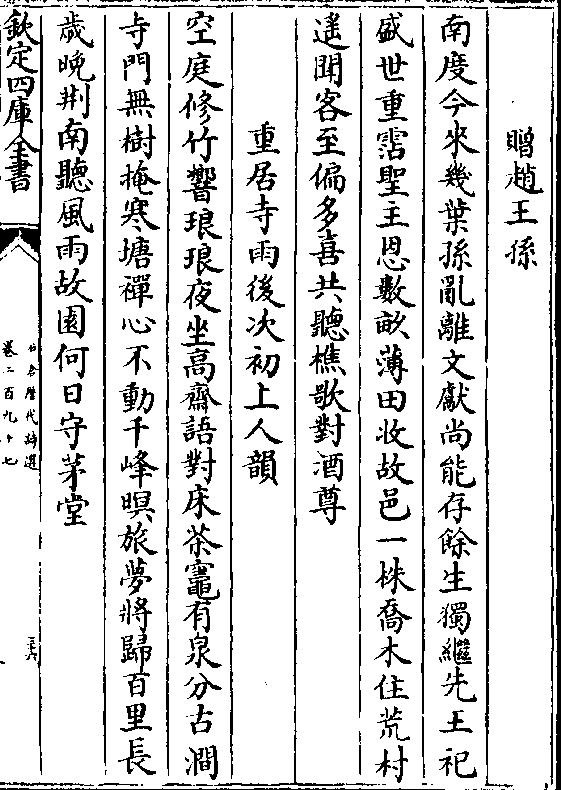 贈趙王孫
南度今來幾葉孫亂離文獻尚能存餘生獨繼先王祀
盛世重霑聖主恩數畝薄田收故邑一株喬木住荒村
遙聞客至偏多喜共聽樵歌對酒尊
重居寺雨後次初上人韻
空庭修竹響琅琅夜坐高齋語對床茶竈有泉分古澗
寺門無樹掩寒塘禪心不動千峰暝旅夢將歸百里長
歲晚荆南聽風雨故園何日守茅堂
欽定四庫全書
石倉歷代詩選
卷二百九十七